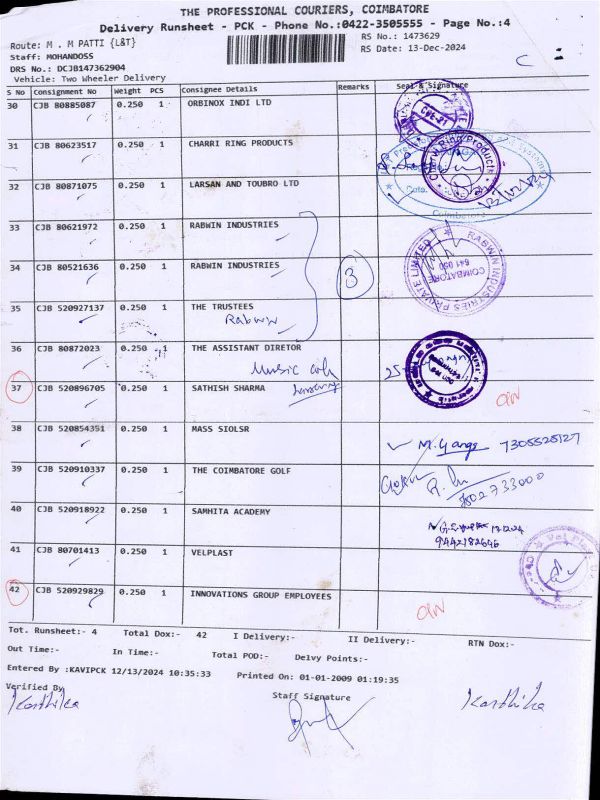 THE PROFESSIONAL COURIERS, COIMBATORE
Delivery Runsheet - PCK - Phone No.:0422-3505555 - Page No.:4
Route: M . M PATTI {L&T}
RS No.: 1473629
Staff: MOHANDOSS
RS Date: 13-Dec-2024
DRS No.: DCJB147362904
Vehicle: Two Wheeler Delivery
S No Consignment No Weight PCS Consignee Details Remarks Seal & Signature
30 CJB 80885087 0.250 1 ORBINOX INDI LTD
31 CJB 80623517 0.250 1 CHARRI RING PRODUCTS
Charri Ring Products
32 CJB 80871075 0.250 1 LARSAN AND TOUBRO LTD
Coimbatore
33 CJB 80621972 0.250 1 RABWIN INDUSTRIES
34 CJB 80521636 0.250 1 RABWIN INDUSTRIES
3
RABWIN INDUSTRIES PRIVATE LIMITED
COIMBATORE
641 050
35 CJB 520927137 0.250 1 THE TRUSTEES
Rabwin
36 CJB 80872023 0.250 1 THE ASSISTANT DIRETOR
Music
37 CJB 520896705 0.250 1 SATHISH SHARMA
38 CJB 520854351 0.250 1 MASS SIOLSR
39 CJB 520910337 0.250 1 THE COIMBATORE GOLF
40 CJB 520918922 0.250 1 SAMHITA ACADEMY
9442182646
41 CJB 80701413 0.250 1 VELPLAST
42 CJB 520929829 0.250 1 INNOVATIONS GROUP EMPLOYEES
Tot. Runsheet:- 4 Total Dox:- 42 I Delivery:- II Delivery:- RTN Dox:-
Out Time:- In Time:- Total POD:- Delvy Points:-
Entered By :KAVIPCK 12/13/2024 10:35:33 Printed On: 01-01-2009 01:19:35
Verified By Staff Signature
Karthika Karthika